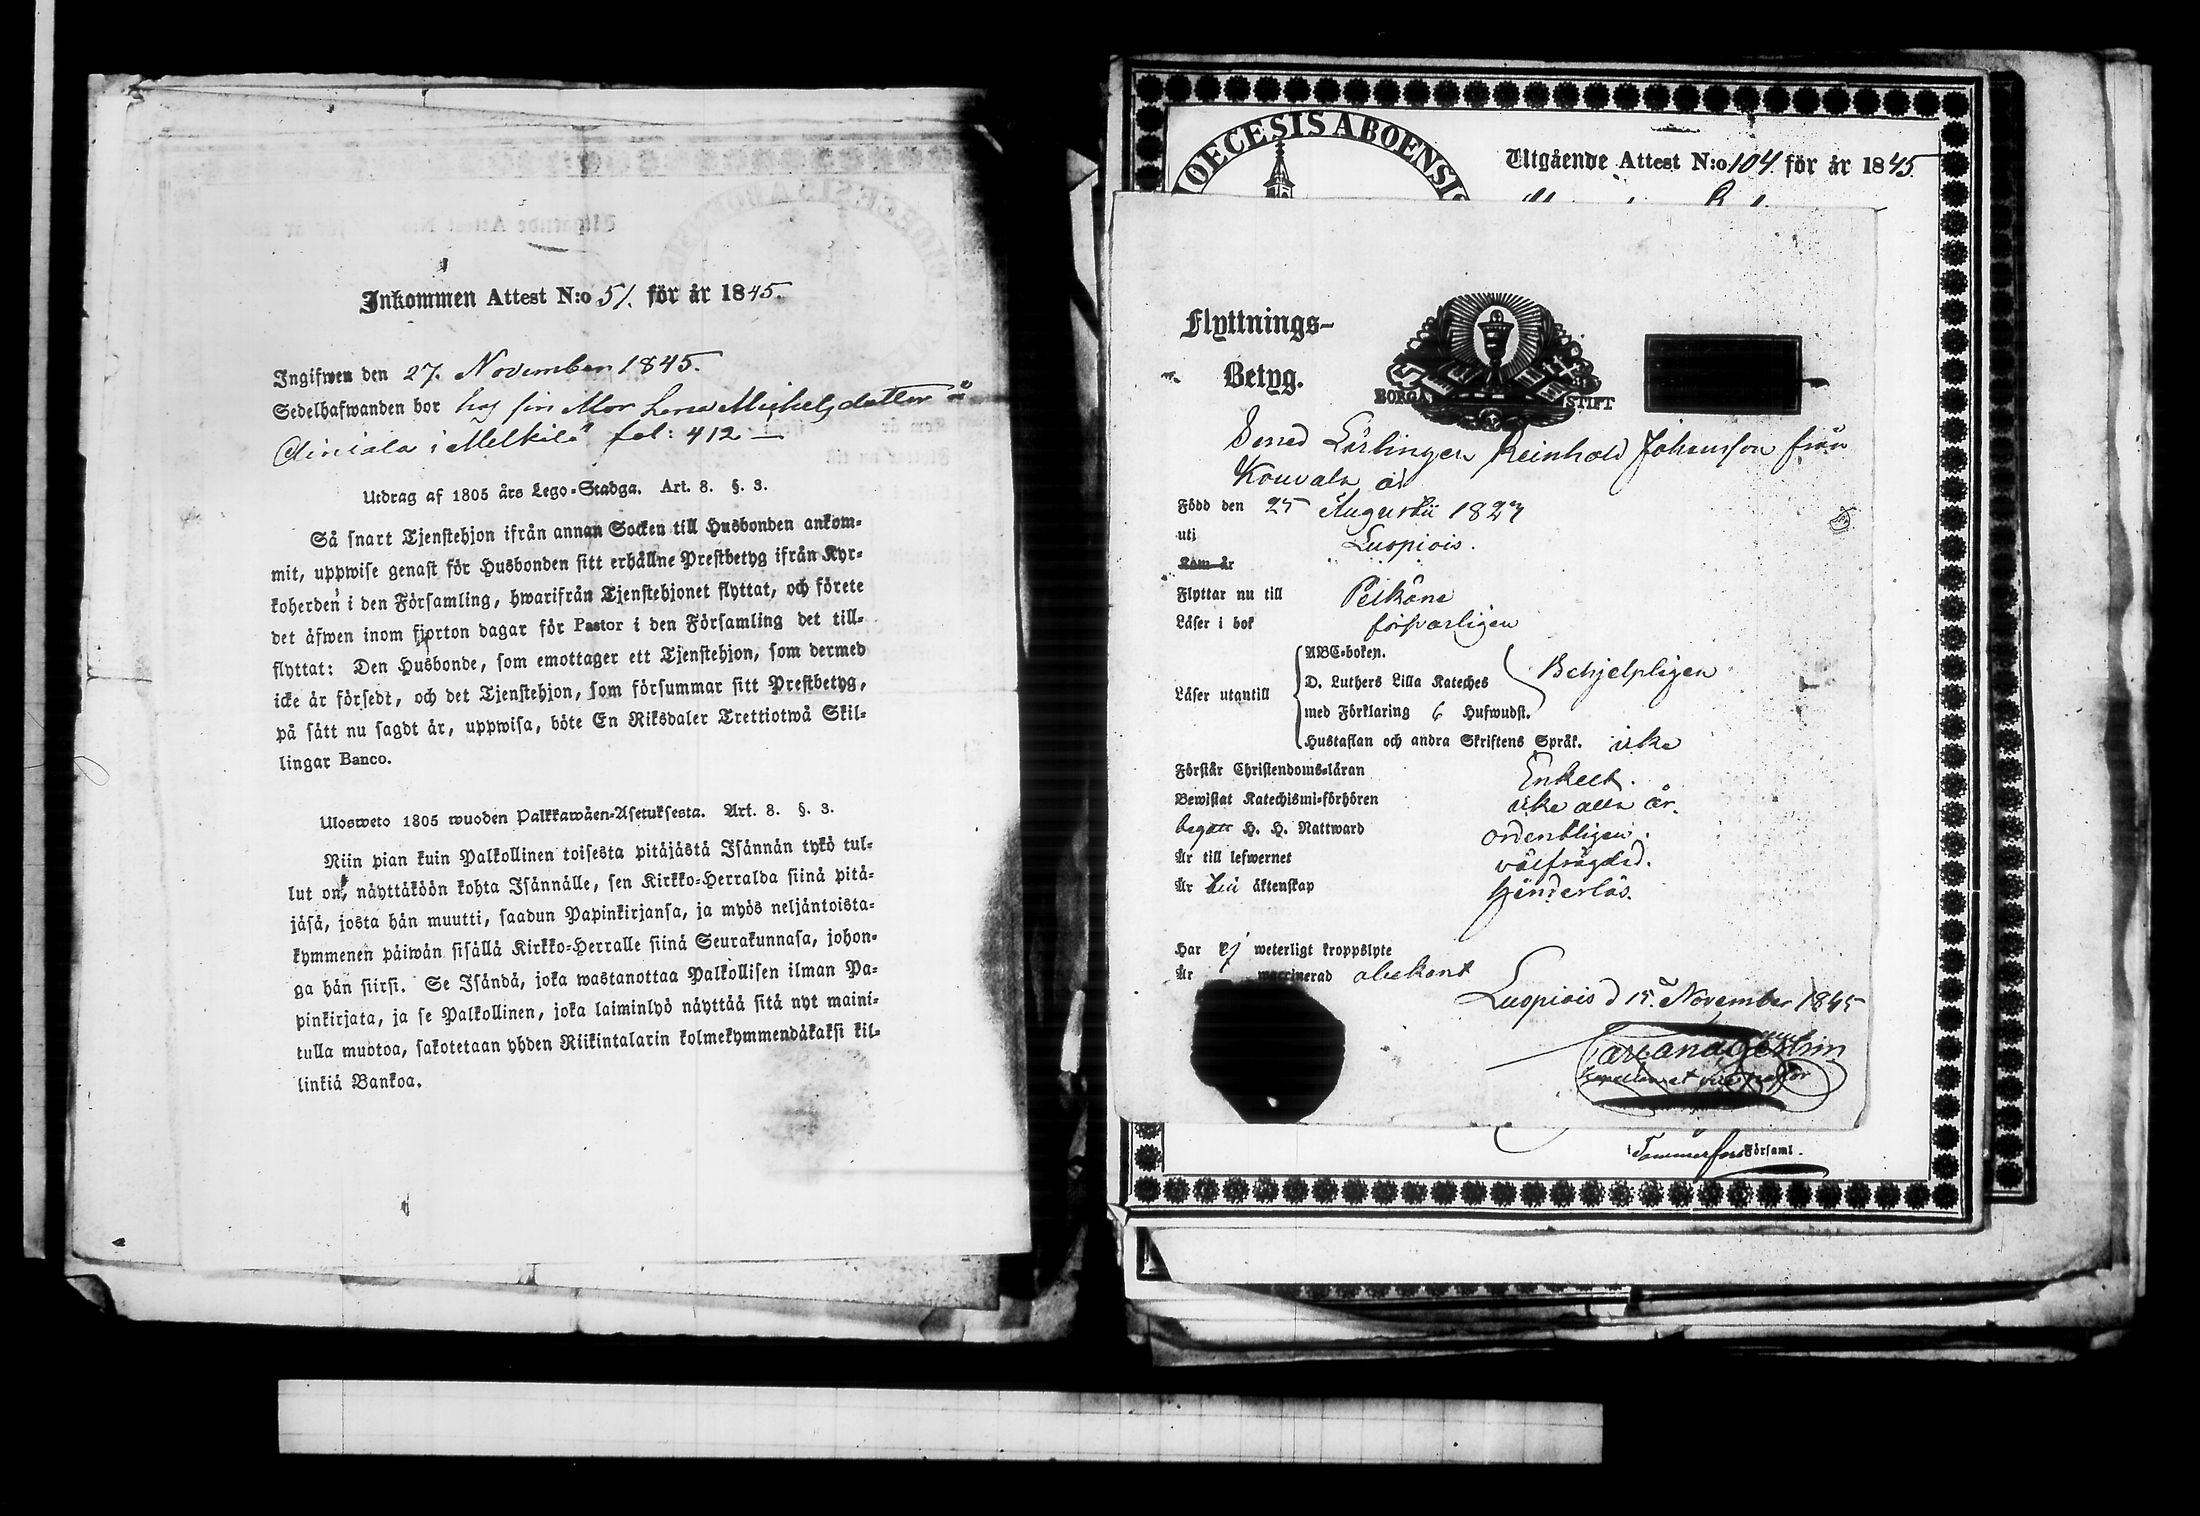 Inkommen Attest N:o 51. för år 1845.
Ingifwen den 27. November 1845.
Sedelhafwanden bor hos sin Mor Lena Michelsdotter å
i Melkilä fol: 412 —
Utdrag af 1805 års Lego-Stadga. Art. 8. §. 3.
Så snart Tjenstehjon ifrån annan Socken till Husbonden ankom-
mit, uppwise genast för Husbonden sitt erhållne Prestbetyg ifrån Kyr-
koherden i den Församling, hwarifrån Tjenstehjonet flyttat, och förete
det äfwen inom fjorton dagar för Pastor i den Församling det till-
flyttat: Den Husbonde, som emottager ett Tjenstehjon, som dermed
icke är försedt, och det Tjenstehjon, som försummar sitt Prestbetyg,
på sätt nu sagdt är, uppwisa, böte En Riksdaler Trettiotwå Skil-
lingar Banco.
Ulosweto 1805 wuoden Palkkawäen-Asetuksesta. Art. 8. §. 3.
Niin pian kuin Palkollinen toisesta pitäjästä Isännän tykö tul-
lut on, näyttäköön kohta Isännälle, sen Kirkko-Herralda siinä pitä-
jäsä, josta hän muutti, saadun Papinkirjansa, ja myös neljäntoista-
kymmenen päiwän sisällä Kirkko-Herralle siinä Seurakunnasa, johon-
ga hän siirsi. Se Isändä, joka wastanottaa Palkollisen ilman Pa-
pinkirjata, ja se Palkollinen, joka laiminlyö näyttää sitä nyt maini-
tulla muotoa, sakotetaan yhden Riikintalarin kolmekymmendäkaksi kil-
linkiä Bankoa.
DIOECESIS ABOENSIS
Utgående Attest N:o 104 för år 1845
Flyttnings-
Betyg.
BORGÅ STIFT
Lärlingen Reinhold Johansson från
Kouvala är
Född den 25 Augusti 1827
uti Luopiois.
Kom år
Flyttar nu till Pelkäne
Läser i bok försvarligen
Läser utantill
ABC-boken.
D. Luthers Lilla Kateches
med Förklaring 6 Hufwudst.
Behjelpligen
Hustaflan och andra Skriftens Språk. icke
Förstår Christendoms-läran Enkelt.
Bewistat Katechismi-förhören icke alla år.
begått H. H. Nattward ordentligen.
Är till lefwernet välfrägdad.
Är till äktenskap hinderlös.
Har ej weterligt kroppslyte
Är waccinerad obekant
Luopiois d 15. November 1845
Capellan et vice pastor
i Tammerfors Församl.